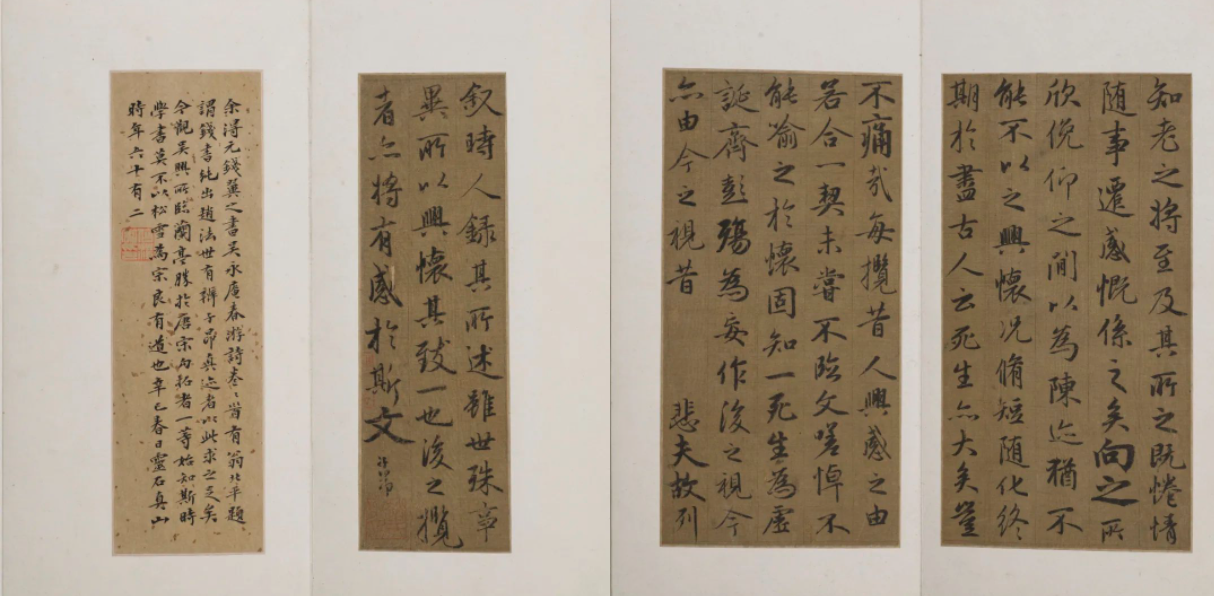 知老之將至及其所之既惓情
随事遷感慨係之矣向之所
欣俛仰之閒以為陳迹猶不
能不以之興懷況脩短随化終
期於盡古人云死生亦大矣豈
不痛哉每攬昔人興感之由
若合一契未嘗不臨文嗟悼不
能喻之於懷固知一死生為虛
誕齊彭殤為妄作後之視今
亦由今之視昔 悲夫故列
叙時人錄其所述雖世殊事
異所以興懷其致一也後之攬
者亦將有感於斯文
余得元錢翼之書吴永廣春游詩卷〻首有翁北平題
謂錢書純出趙法世有辨子昂真迹者以此求之足矣
今觀吴興所臨蘭亭勝於唐宋向拓者一等始知斯時
學書莫不以松雪為宗良有道也辛巳春日靈石真山
時年六十有二